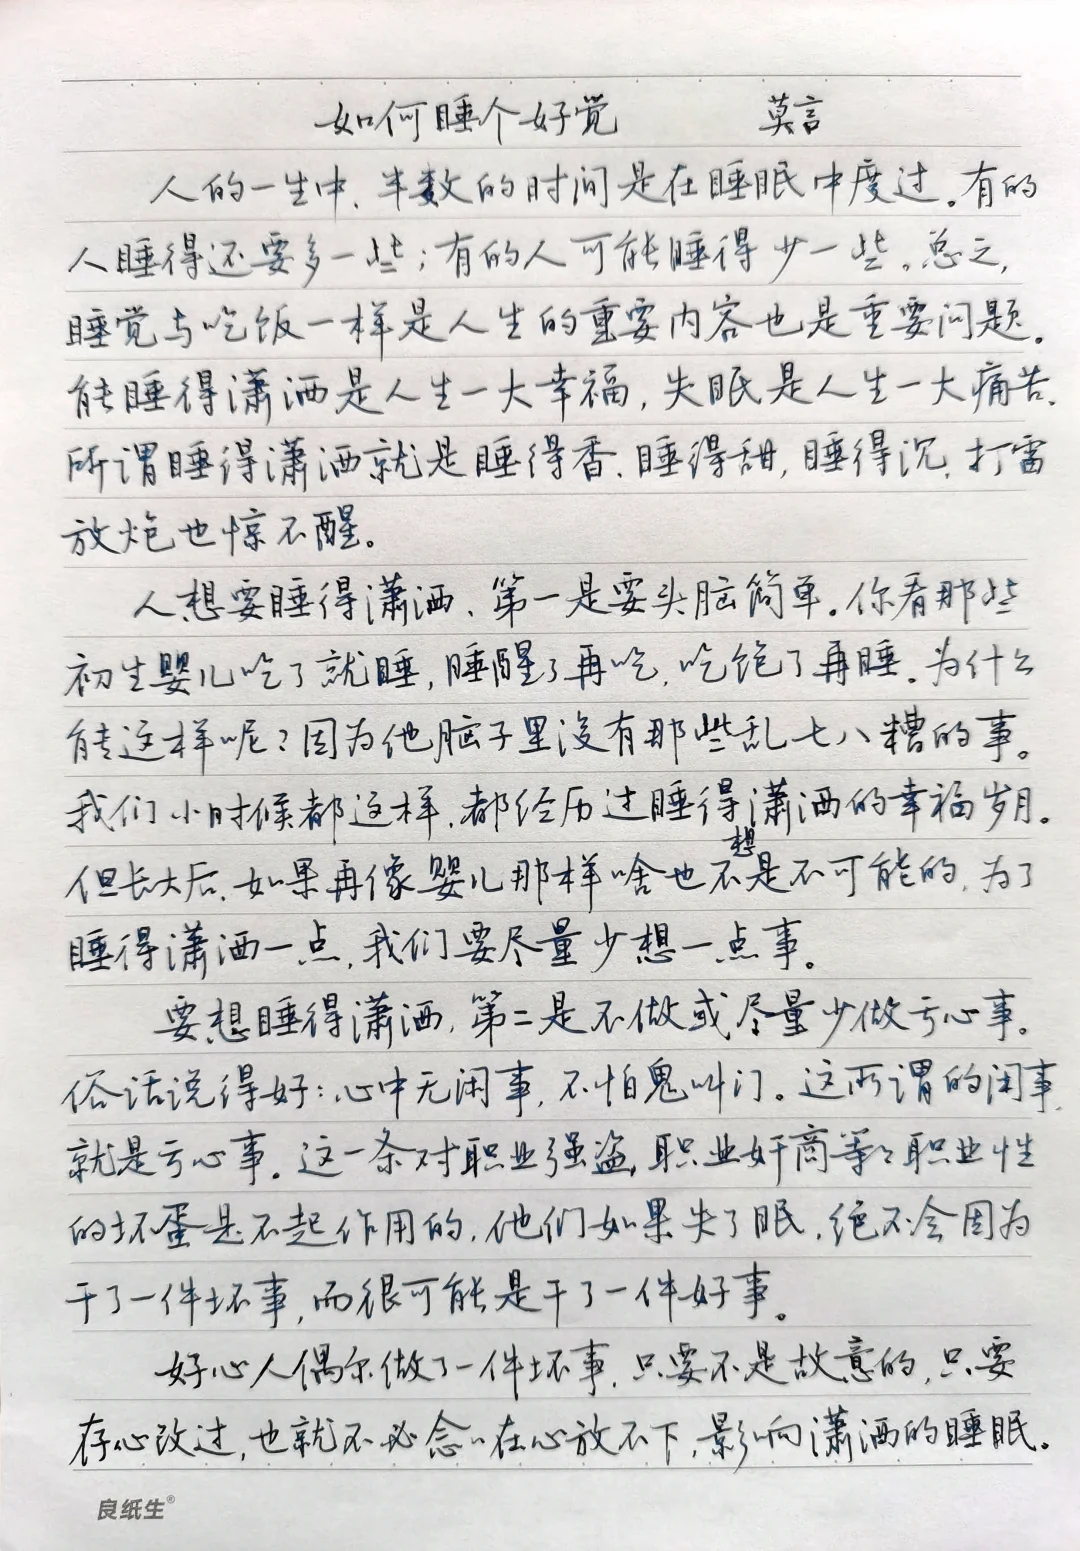 如何睡个好觉 莫言
人的一生中、半数的时间是在睡眠中度过。有的
人睡得还要多一些；有的人可能睡得少一些。总之，
睡觉与吃饭一样是人生的重要内容也是重要问题。
能睡得潇洒是人生一大幸福，失眠是人生一大痛苦、
所谓睡得潇洒就是睡得香、睡得甜，睡得沉、打雷
放炮也惊不醒。
人想要睡得潇洒、第一是要头脑简单。你看那些
初生婴儿吃了就睡，睡醒了再吃，吃饱了再睡。为什么
能这样呢？因为他脑子里没有那些乱七八糟的事。
我们小时候都这样，都经历过睡得潇洒的幸福岁月。
但长大后、如果再像婴儿那样啥也不想是不可能的，为了
睡得潇洒一点，我们要尽量少想一点事。
要想睡得潇洒，第二是不做或尽量少做亏心事。
俗话说得好：心中无闲事，不怕鬼叫门。这所谓的闲事，
就是亏心事。这一条对职业强盗，职业奸商等々职业性
的坏蛋是不起作用的，他们如果失了眠，绝不会因为
干了一件坏事，而很可能是干了一件好事。
好心人偶尔做了一件坏事，只要不是故意的，只要
存心改过，也就不必念念在心放不下，影响潇洒的睡眠。
良纸生®